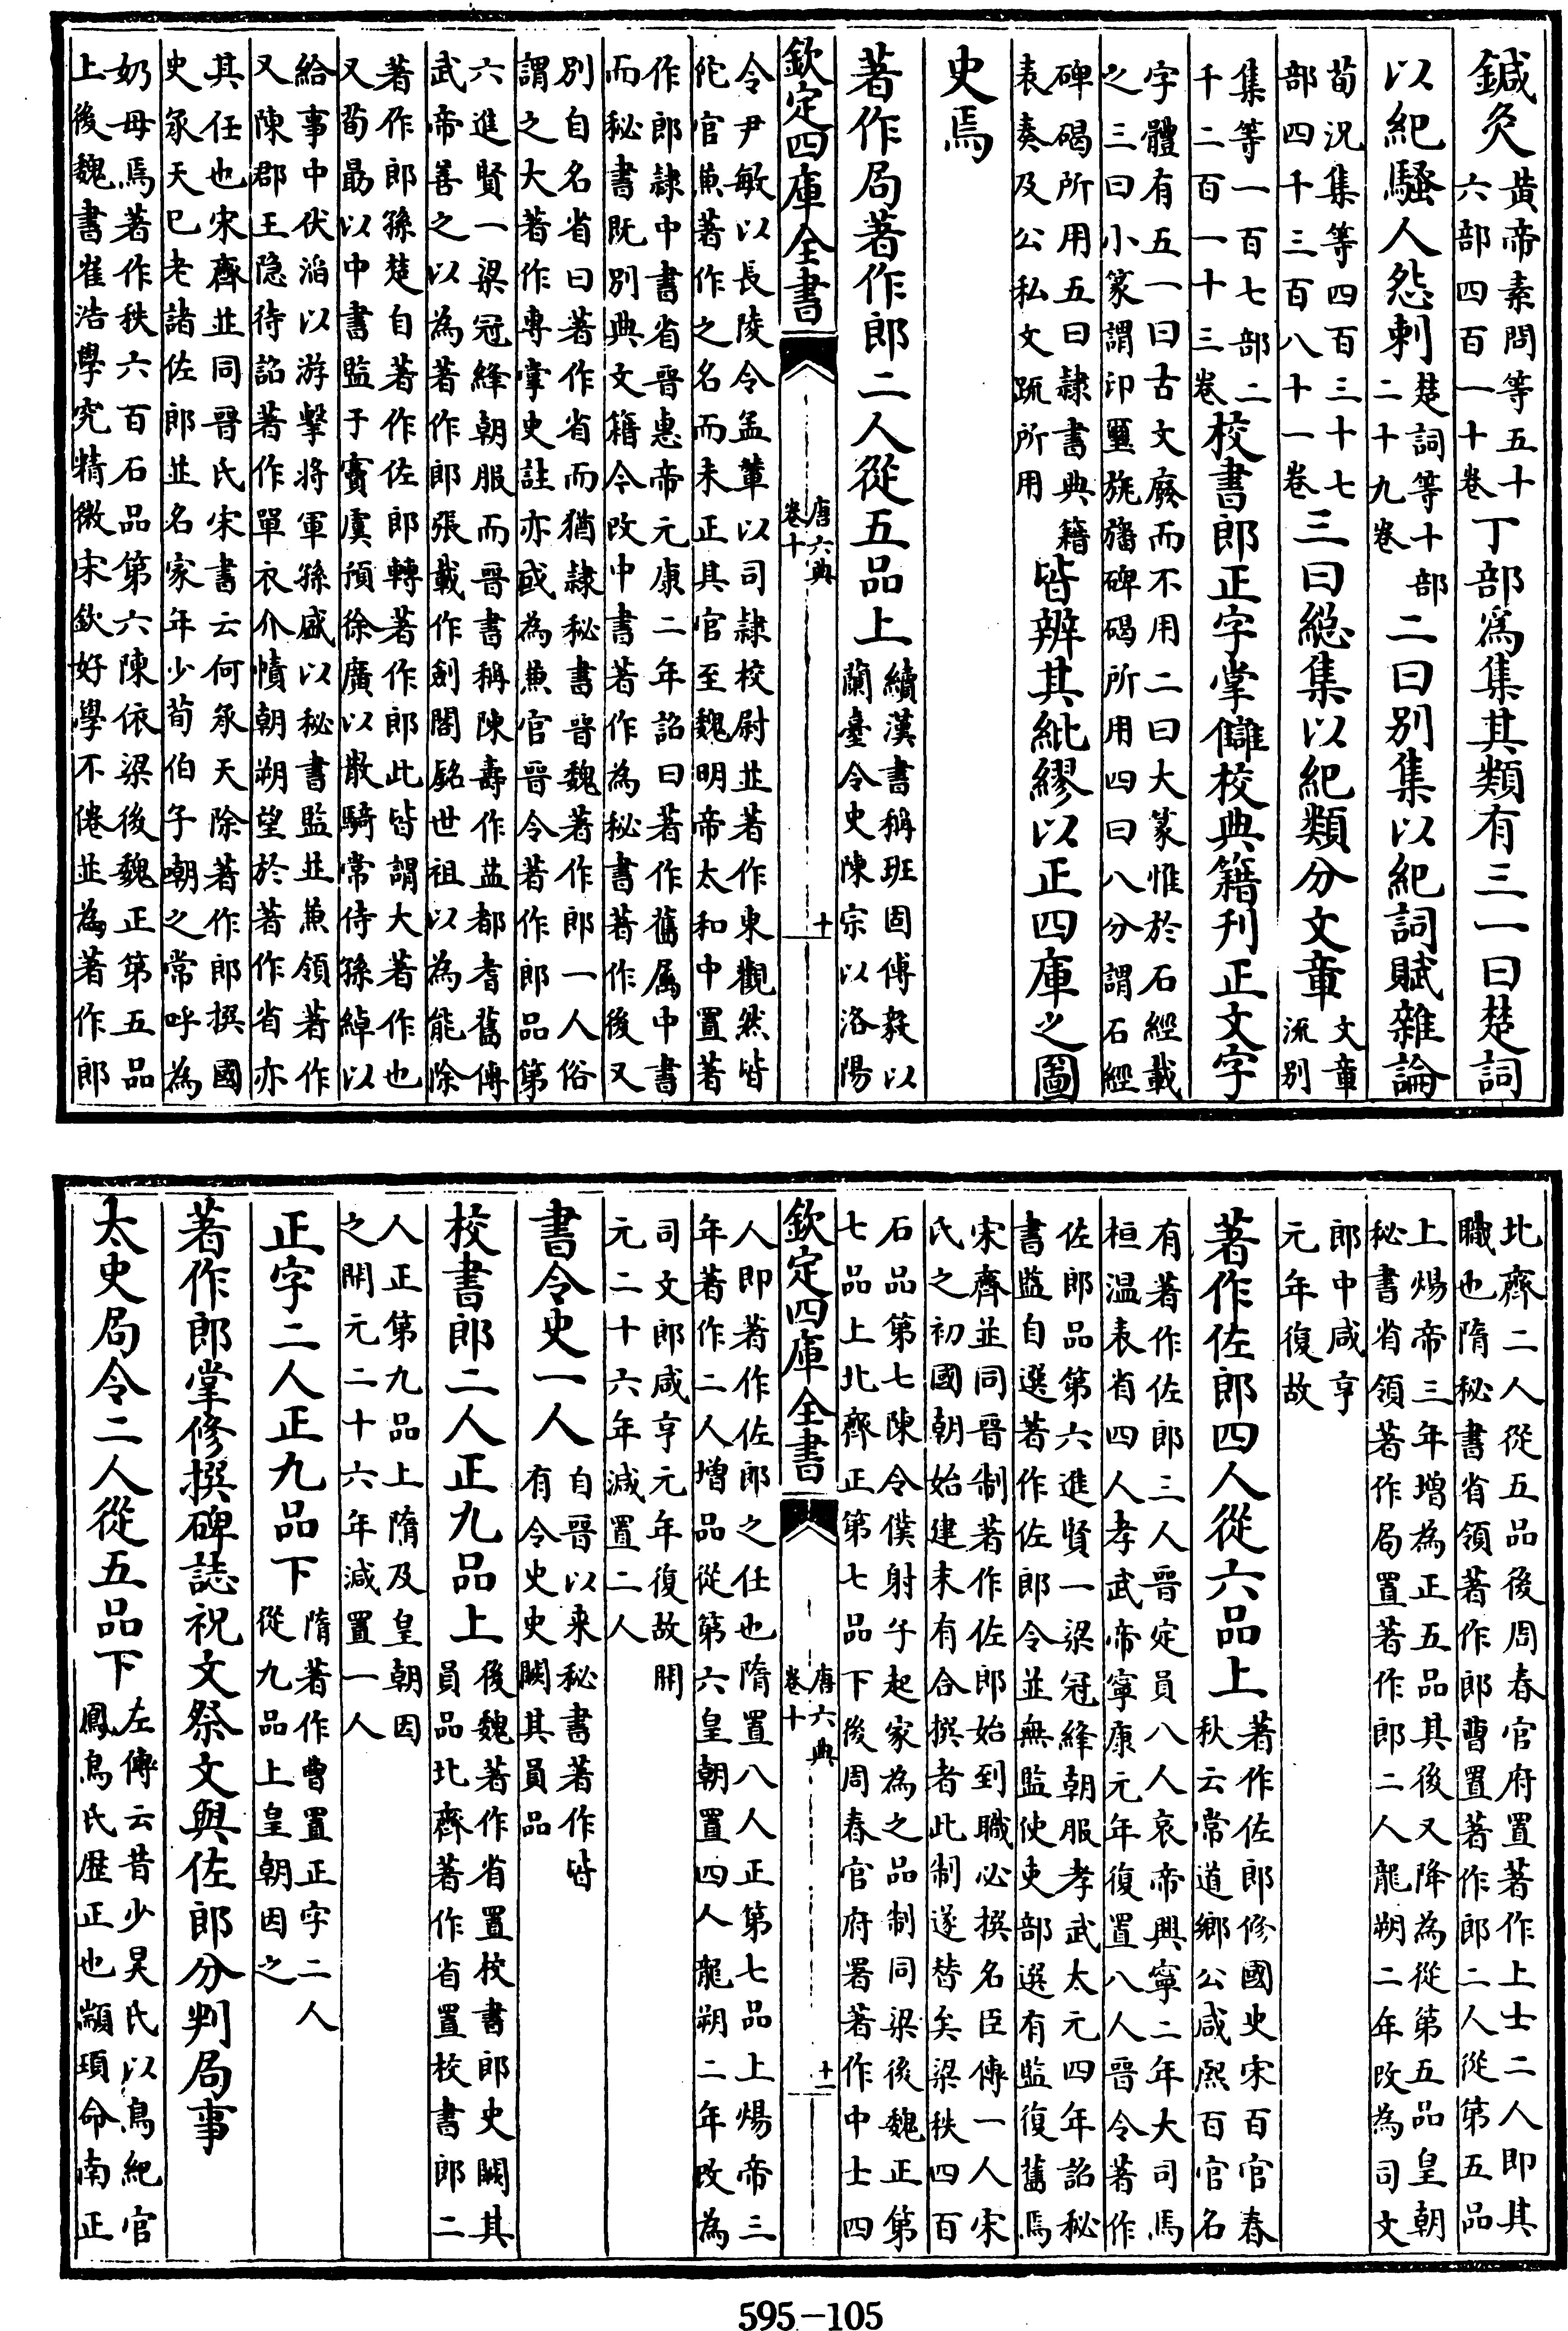 鍼灸黃帝素問等五十六部四百一十卷丁部爲集其類有三一曰楚詞
以紀騷人怨刺楚詞等十部二十九卷二曰別集以紀詞賦雜論
荀況集等四百三十七部四千三百八十一卷三曰緫集以紀類分文章文章流別
集等一百七部二千二百一十三卷校書郎正字掌讎校典籍刋正文字
字體有五一曰古文廢而不用二曰大篆惟於石經載之三曰小篆謂印璽旐旛碑碣所用四曰八分謂石經
碑碣所用五曰隷書典籍表奏及公私文疏所用皆辨其紕繆以正四庫之圖
史焉
著作局著作郎二人從五品上續漢書稱班固傅毅以蘭臺令史陳宗以洛陽
欽定四庫全書
唐六典
卷十
十
令尹敏以長陵令孟輩以司隷校尉並著作東觀然皆佗官兼著作之名而未正其官至魏明帝太和中置著
作郎隷中書省晉惠帝元康二年詔曰著作舊属中書而秘書既別典文籍今改中書著作為秘書著作後又
別自名省曰著作省而猶隷秘書晉魏著作郎一人俗謂之大著作專掌史註亦或為兼官晉令著作郎品第
六進賢一梁冠絳朝服而晉書稱陳壽作益都耆舊傳武帝善之以為著作郎張載作劍閣銘世祖以為能除
著作郎孫楚自著作佐郎轉著作郎此皆謂大著作也又荀勗以中書監于寳虞預徐廣以散騎常侍孫綽以
給事中伏滔以游擊將軍孫盛以秘書監並兼領著作又陳郡王隐待詔著作單衣介幘朝朔望於著作省亦
其任也宋齊並同晉氏宋書云何承天除著作郎撰國史承天已老諸佐郎並名家年少荀伯子嘲之常呼為
奶母焉著作秩六百石品第六陳依梁後魏正第五品上後魏書崔浩學究精微宋欽好學不倦並為著作郎
北齊二人從五品後周春官府置著作上士二人即其職也隋秘書省領著作郎曹置著作郎二人從第五品
上煬帝三年增為正五品其後又降為從第五品皇朝秘書省領著作局置著作郎二人龍朔二年改為司文
郎中咸亨元年復故
著作佐郎四人從六品上著作佐郎修國史宋百官春秋云常道鄉公咸熙百官名
有著作佐郎三人晉定員八人哀帝興寧二年大司馬桓温表省四人孝武帝寧康元年復置八人晉令著作
佐郎品第六進賢一梁冠絳朝服孝武太元四年詔秘書監自選著作佐郎令並無監使吏部選有監復舊焉
宋齊並同晉制著作佐郎始到職必撰名臣傳一人宋氏之初國朝始建未有合撰者此制遂替矣梁秩四百
石品第七陳令僕射子起家為之品制同梁後魏正第七品上北齊正第七品下後周春官府署著作中士四
欽定四庫全書
唐六典
卷十
十一
人即著作佐郎之任也隋置八人正第七品上煬帝三年著作二人增品從第六皇朝置四人龍朔二年改為
司文郎咸亨元年復故開元二十六年減置二人
書令史一人自晉以来秘書著作皆有令史史闕其員品
校書郎二人正九品上後魏著作省置校書郎史闕其員品北齊著作省置校書郎二
人正第九品上隋及皇朝因之開元二十六年減置一人
正字二人正九品下隋著作曹置正字二人從九品上皇朝因之
著作郎掌修撰碑誌祝文祭文與佐郎分判局事
太史局令二人從五品下左傳云昔少昊氏以鳥紀官鳳鳥氏歷正也顓頊命南正
595-105